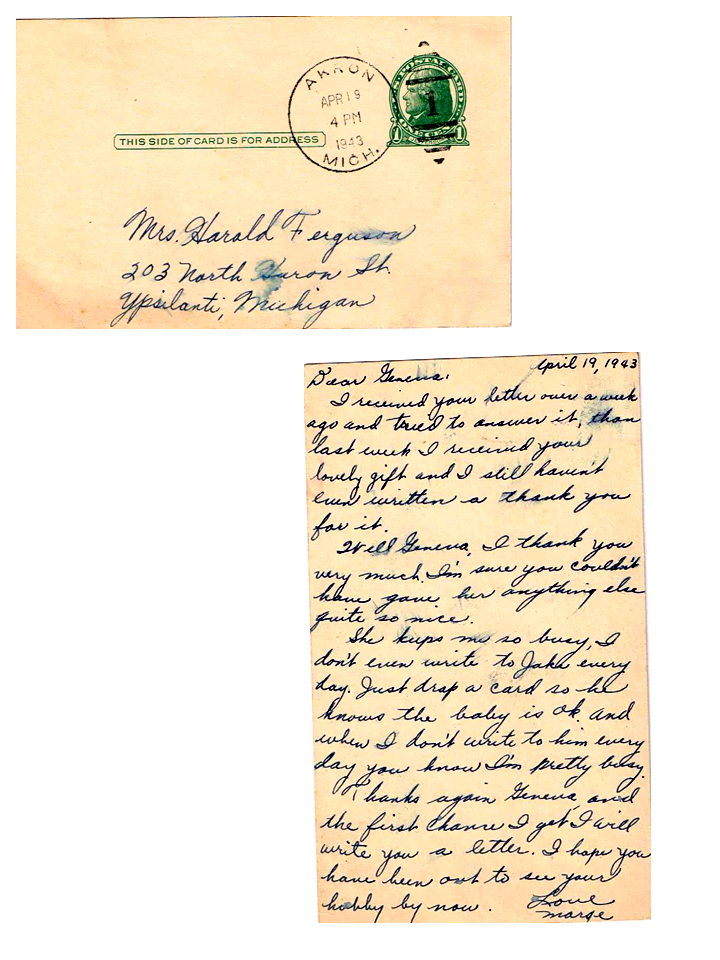 AKRON
APR 19
4 PM
1943
MICH.
THIS SIDE OF CARD IS FOR ADDRESS
1
1 1
Mrs. Harald Ferguson
203 North Huron St.
Ypsilanti, Michigan
April 19, 1943
Dear Geneva:
I received your letter over a week
ago and tried to answer it, than
last week I received your
lovely gift and I still haven't
even written a thank you
for it.
Well Geneva, I thank you
very much. I'm sure you couldn't
have gave her anything else
quite so nice.
She keeps me so busy, I
don't even write to Jake every
day. Just drop a card so he
knows the baby is ok. And
when I don't write to him every
day you know I'm pretty busy.
Thanks again Geneva, and
the first chance I get I will
write you a letter. I hope you
have been out to see your
hobby by now. Love
Marge